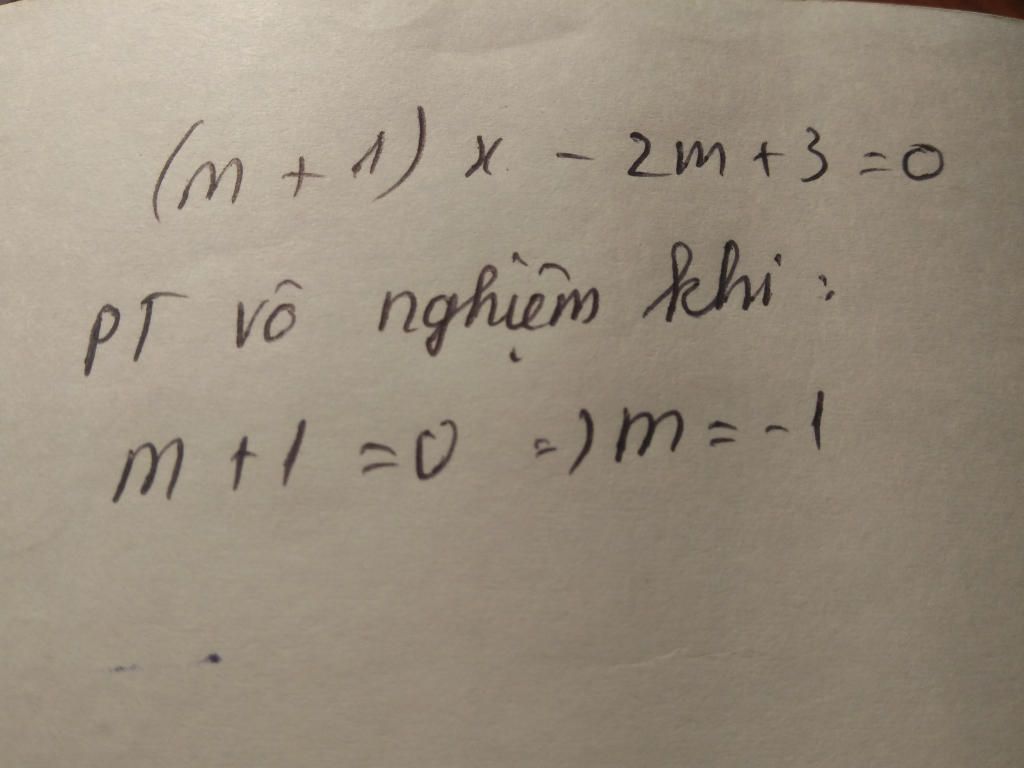 (m + 1) x - 2m + 3 = 0
PT vô nghiệm khi :
m + 1 = 0 => m = -1